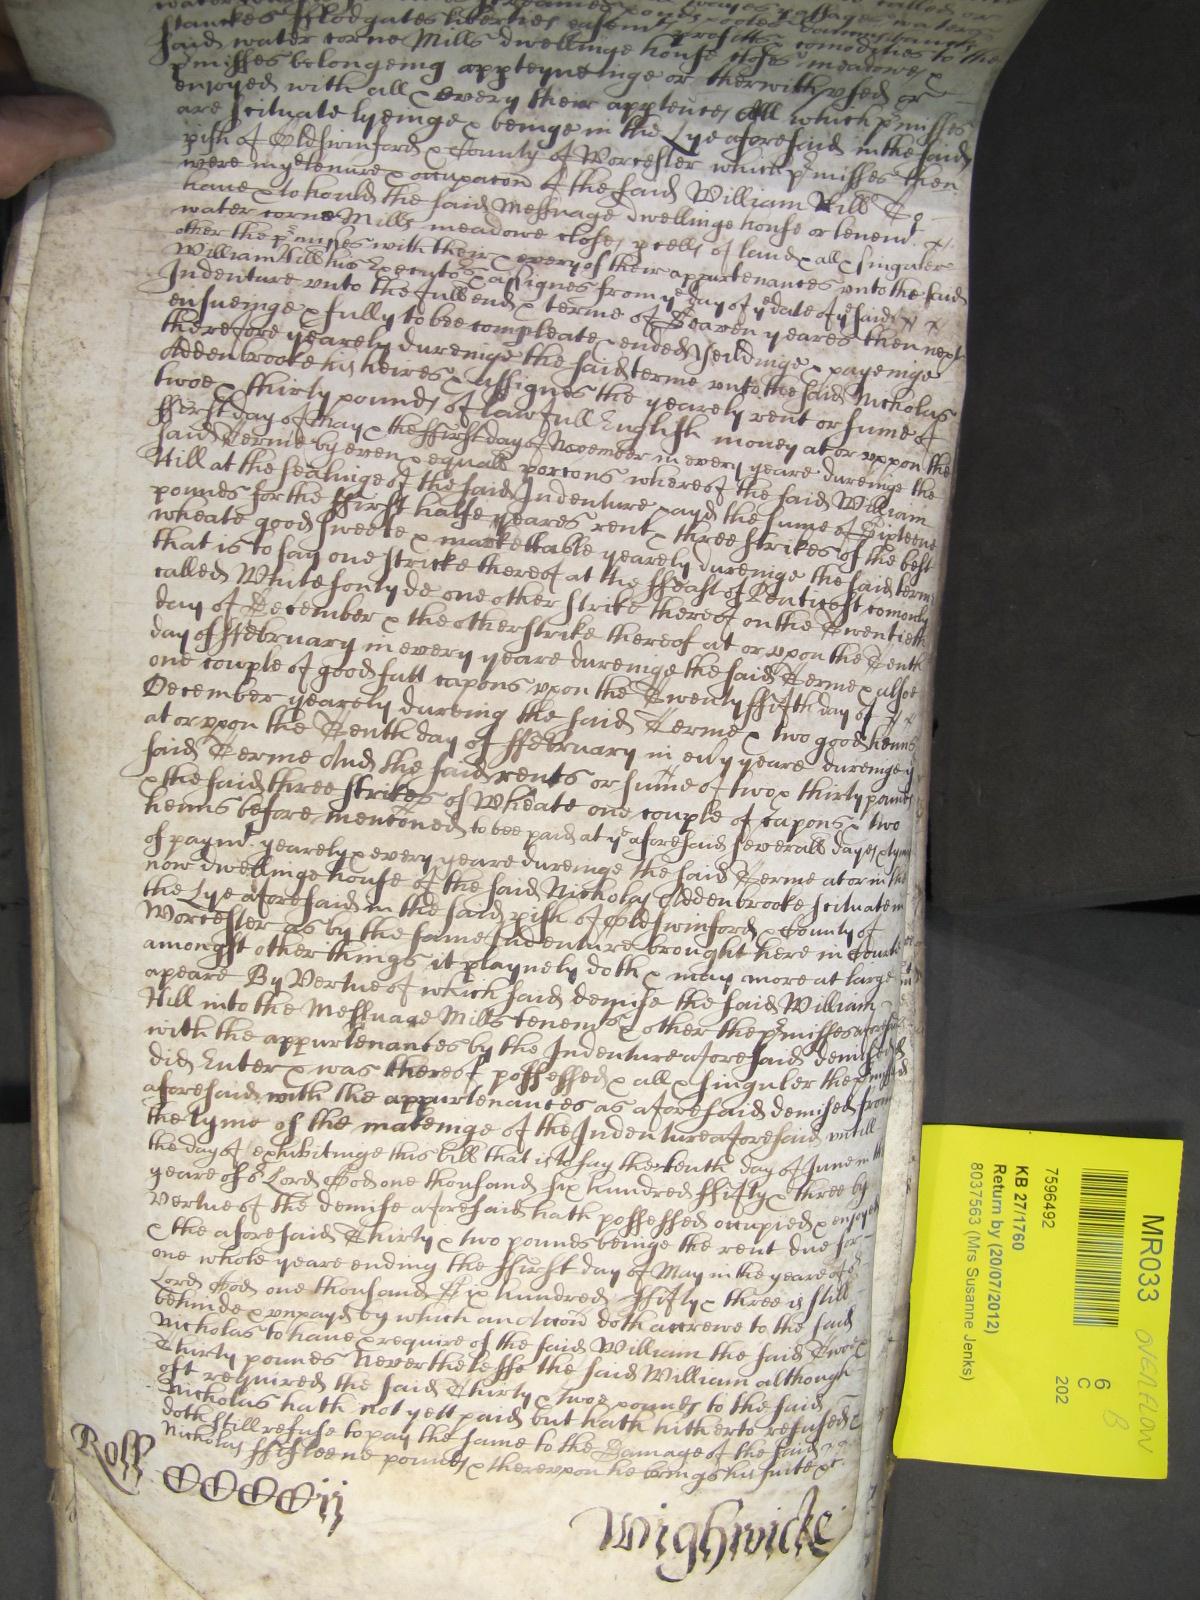 stanckes fflodgates liberties easemts profitts comodities to the
said water corne Mills dwellinge house closes meadowes &
pmisses belongeing appteyneinge or therwith vsed or
enioyed with all & every their apptences All which pmisses
are scituate lyeinge & beinge in the Lye aforesaid in the said
pish of Oldswinford & County of Worcester which pmisses then
were in ye tenure & occupacon of the said William Hill To
haue & to hould the said Messuage dwellinge house or tenemt
water corne Mills meadowe closes pcells of land & all & singuler
other the pmisses with their & every of their appurtenances vnto the said
William Hill his Executors & assignes from ye day of ye date of ye said
Indenture vnto the full end & terme of Seaven yeares then next
ensueinge & fully to bee compleate & ended Yeildinge & payeinge
therefore yearely dureinge the said terme vnto the said Nicholas
Addenbrooke his heires & Assignes the yearely rent or sume of
twoe & thirty pounds of lawfull English money at or vppon the
ffirst day of May & the ffirst day of November in every yeare dureinge the
said Terme by even & equall porcons whereof the said William
Hill at the sealinge of the said Indenture payd the sume of Sixteene
pounds for the ffirst halfe yeares rent & three strikes of the best
wheate good sweete & markettable yearely dureinge the said terme
that is to say one stricke thereof at the ffeast of Penticost comonly
called Whitesontyde one other strike thereof on the Twentieth
day of December & the other strike thereof at or vpon the Tenth
day of ffebruary in every yeare dureinge the said Terme & alsoe
one couple of good fatt capons vpon the Twenty ffifth day of
December yearely dureing the said Terme & two good henns
at or vpon the Tenth day of ffebruary in evy yeare dureinge ye
said Terme And the said rents or sume of two & thirty pounds
& the said three strikes of Wheate one couple of capons & two
henns before menconed to bee paid at ye aforesaid severall dayes & tymes
of paymt yearely & every yeare dureinge the said Terme at or in the
now dwellinge house of the said Nicholas Addenbrooke scituate in
the Lye aforesaid in the said pish of Oldswinford & County of
Worcester as by the same Indenture brought here in Courte
amongst other things it playnely doth & may more at large
apeare By Vertue of which said demise the said William
Hill into the Messuage Mills tenemts & other the pmisses aforesaid
with the appurtenances by the Indenture aforesaid demised
did Enter & was thereof possessed & all & singuler the pmisses
aforesaid with the appurtenances as aforesaid demised from
the tyme of the makeinge of the Indenture aforesaid vntill
the day of exhibitinge this bill that is to say the tenth day of June in the
yeare of or Lord God one thousand six hundred ffifty & three by
vertue of the demise aforesaid hath possessed occupied & enjoyed
& the aforesaid Thirty & two pounds beinge the rent due for
one whole yeare ending the ffirst day of May in the yeare of or
Lord God one thousand Six hundred ffifty & three is still
behinde & vnpayd by which an accon doth accrewe to the said
Nicholas to haue & require of the said William the said Twoe &
Thirty pounds Neverthelesse the said William although
oft required the said Thirty & twoe pounds to the said
Nicholas hath not yett paid but hath hitherto refused &
doth still refuse to pay the same to the Damage of the said
Nicholas ffifteene pounds & therevpon he brings his suite &c
Ross
Wighwicke
MR033 OVERFLOW
B
6
C
202
7596492
KB 27/1760
Return by (20/07/2012)
8037563 (Mrs Susanne Jenks)